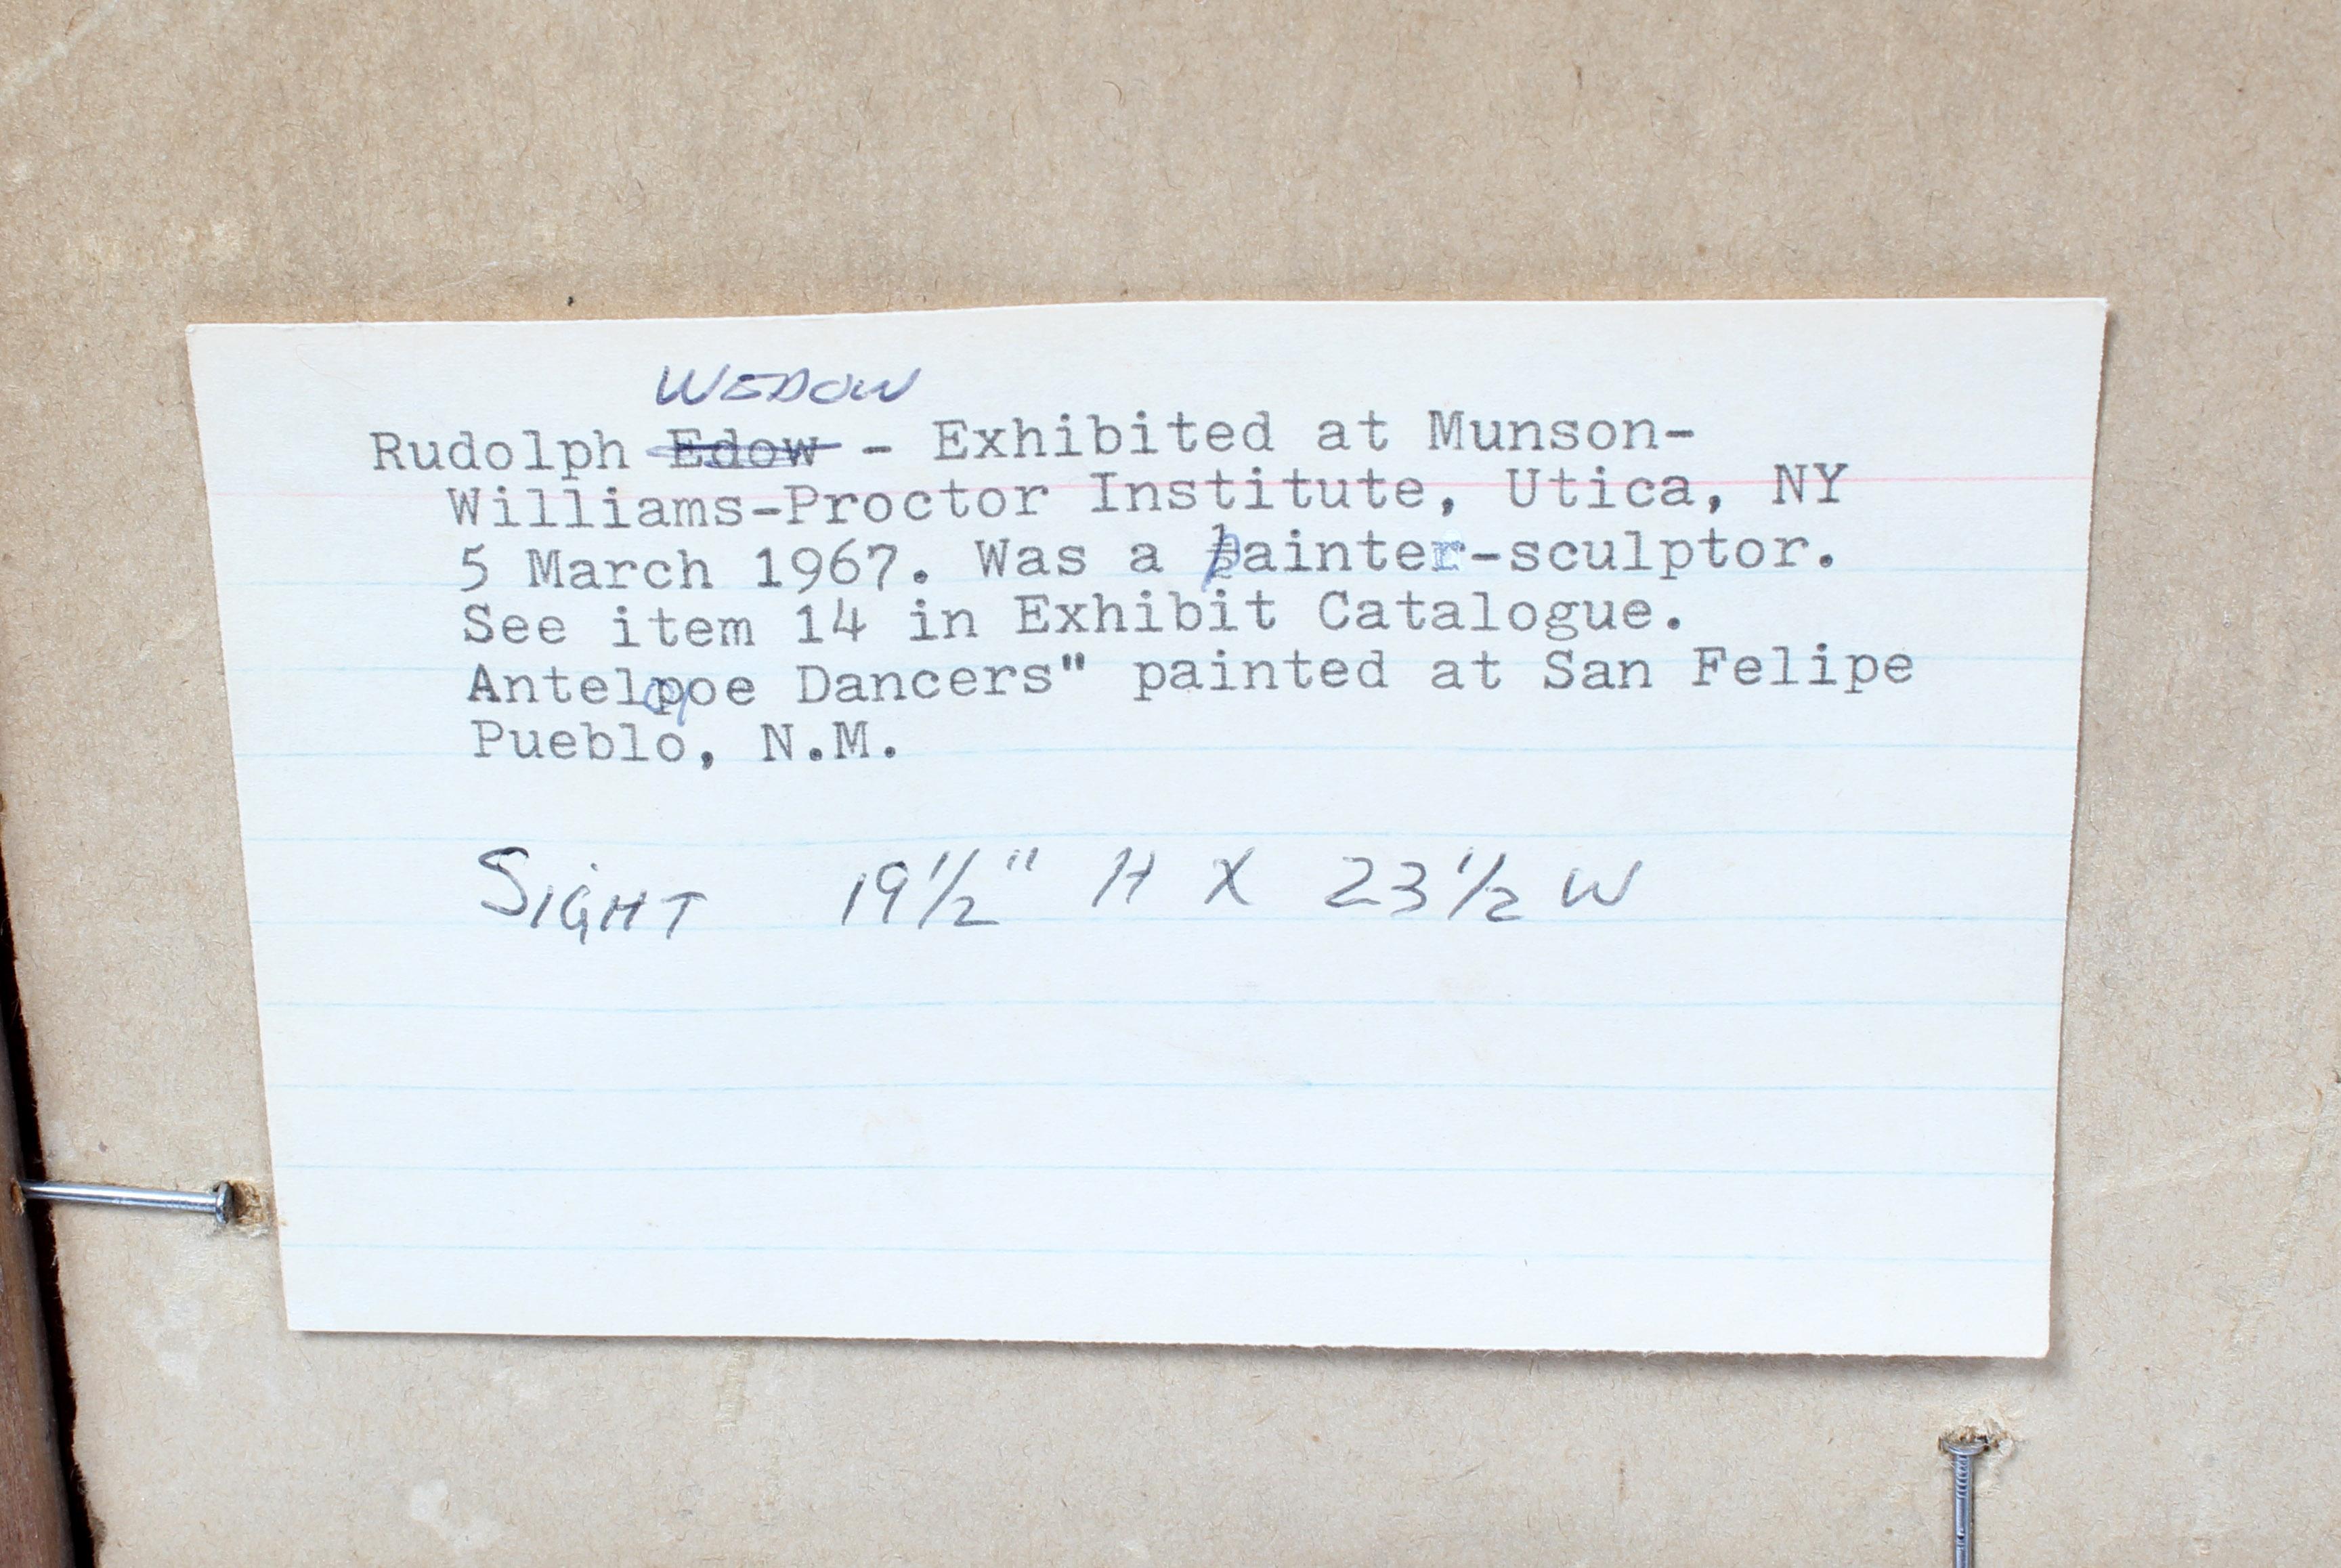 WEDOW
Rudolph Edow - Exhibited at Munson-
Williams-Proctor Institute, Utica, NY
5 March 1967. Was a painter-sculptor.
See item 14 in Exhibit Catalogue.
Antelpoe Dancers" painted at San Felipe
Pueblo, N.M.
SIGHT 19 1/2" H X 23 1/2 W